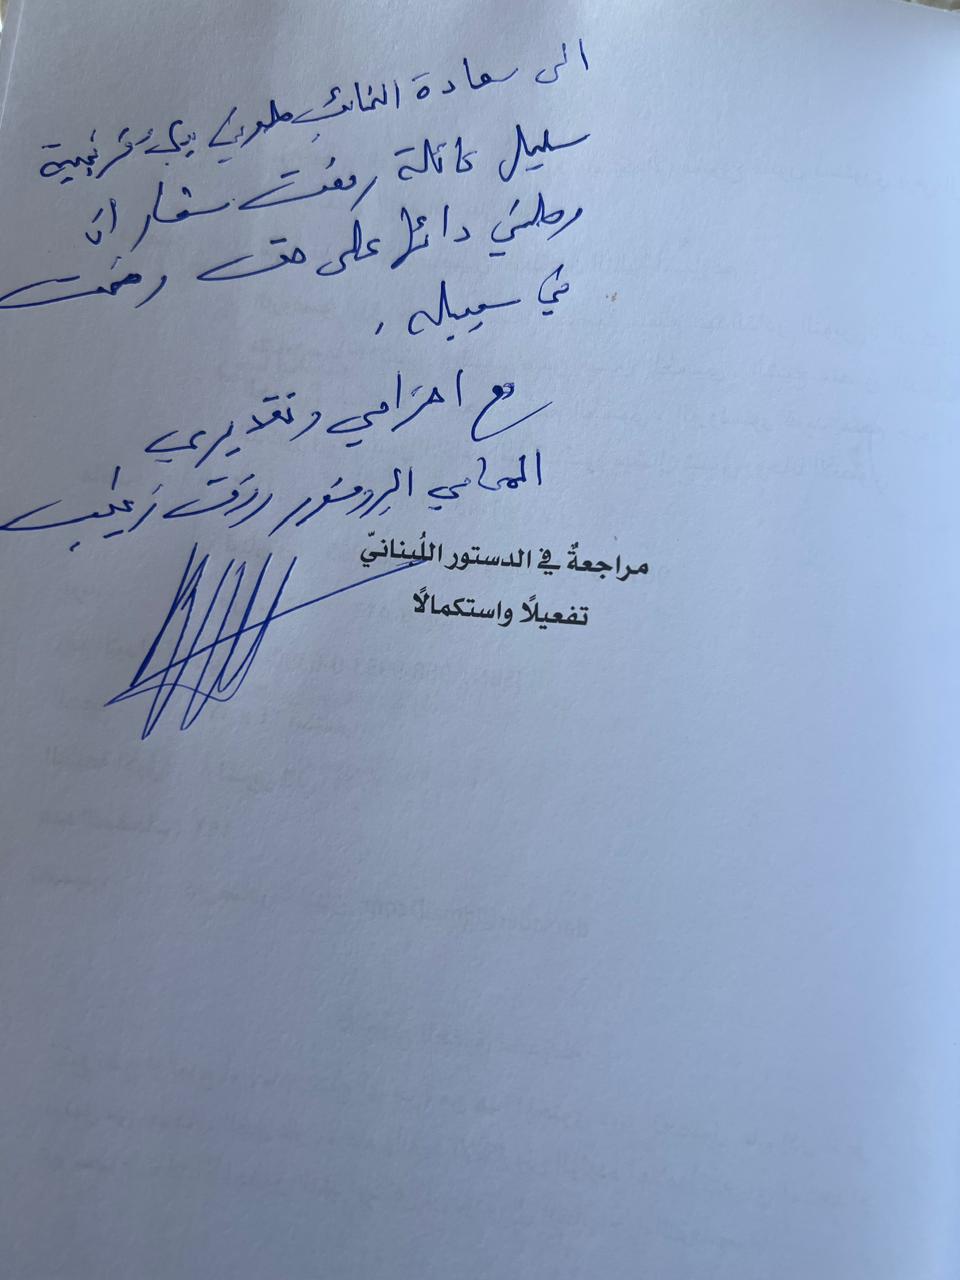 الى سعادة النائب طوني بك فرنجية
سليل عائلة رفعت شعار انّ
وطني دائماً على حق وضحّت
في سبيله .
مع احترامي وتقديري
المحامي البروفسور رزق زغيب
مراجعةٌ في الدستور اللُبنانيّ
تفعيلًا واستكمالًا